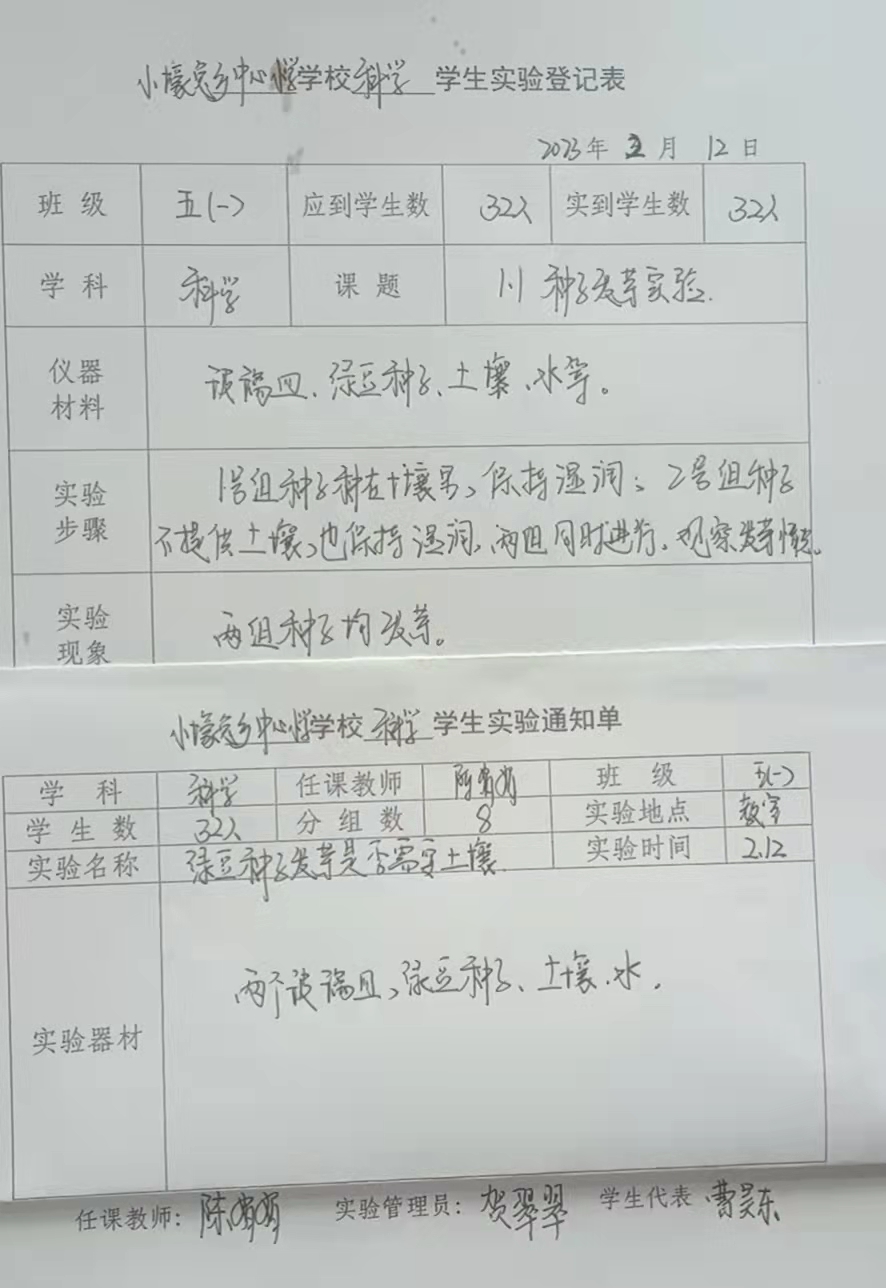 小壕兔乡中心小学学校科学 学生实验登记表
2023年 2月 12日
班级 五(一) 应到学生数 32人 实到学生数 32人
学科 科学 课题 1.1 种子发芽实验.
仪器材料 玻璃皿、绿豆种子、土壤、水等。
实验步骤 1号组种子种在土壤里,保持湿润;2号组种子
不提供土壤,也保持湿润,两组同时进行,观察发芽情况。
实验现象 两组种子均发芽。
小壕兔乡中心小学学校 科学 学生实验通知单
学科 科学 任课教师 班级 五(一)
学生数 32人 分组数 8 实验地点 教室
实验名称 绿豆种子发芽是否需要土壤 实验时间 2.12
实验器材 两个玻璃皿、绿豆种子、土壤、水.
任课教师: 陈 实验管理员: 贺翠翠 学生代表 曹昊东